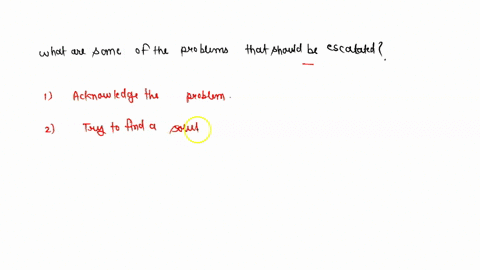 what are some of the problems that should be escalated?
1) Acknowledge the problem.
2) Try to find a solut